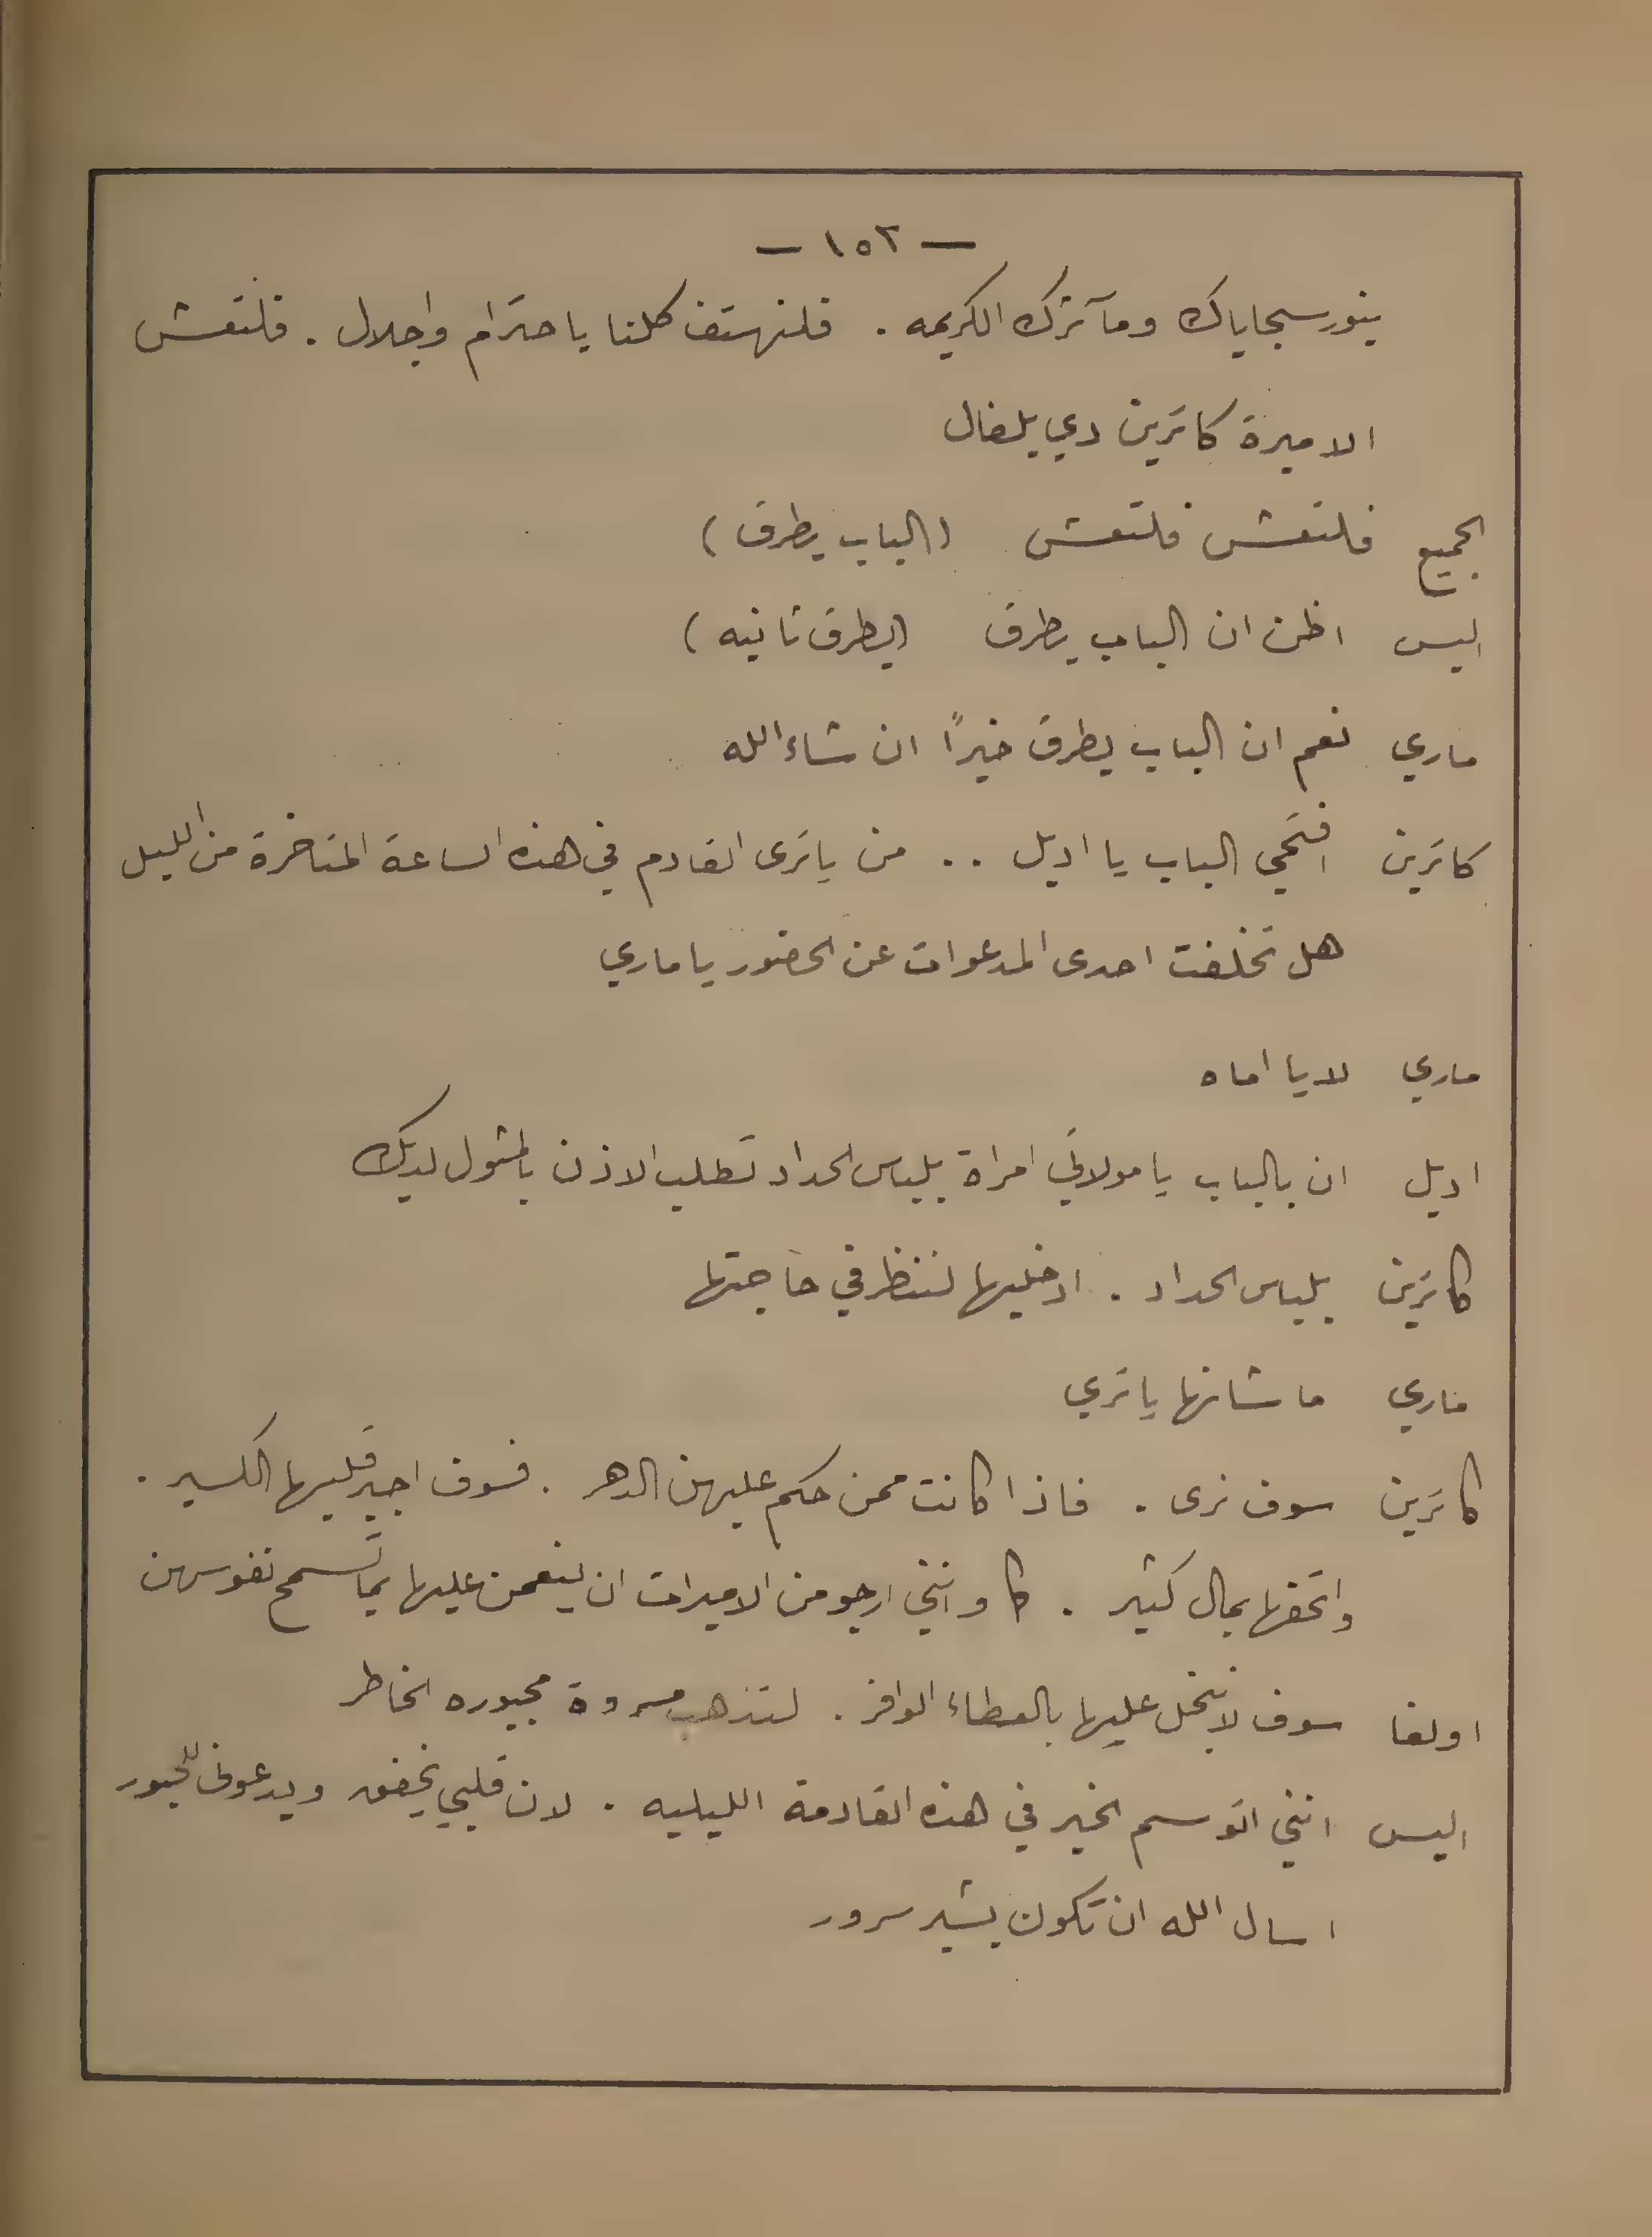 — ١٥٢ —
بنور سجاياك ومآثرك الكريمه . فلنهتف كلنا باحترام واجلال . فلتعش
الاميرة كاترين دي يلفال
الجميع فلتعش فلتعش (الباب يطرق)
اليس اظن ان الباب يطرق (يطرق ثانيه)
ماري نعم ان الباب يطرق خيراً ان شاء الله
كاترين افتحي الباب يا اديل .. من ياترى القادم في هذه الساعة المتاخرة من الليل
هل تخلفت احدى المدعوات عن الحضور يا ماري
ماري لا يا اماه
اديل ان بالباب يا مولاتي امراة بلباس الحداد تطلب الاذن بالمثول لديك
كاترين بلباس الحداد . ادخليها لننظر في حاجتها
ماري ما شانها ياتري
كاترين سوف نرى . فاذا كانت ممن حكم عليهن الدهر . فسوف اجبر قلبها الكسير .
واتحفها بمال كثير . كما وانني ارجو من الاميرات ان ينعمن عليها بما تسمح نفوسهن
اولغا سوف لا نبخل عليها بالعطاء الوافر . لتذهب مجبوره الخاطر
اليس انني اتوسم الخير في هذه القادمة الليليه . لان قلبي يخفق ويدعوني للحبور
اسال الله ان تكون بشير سرور